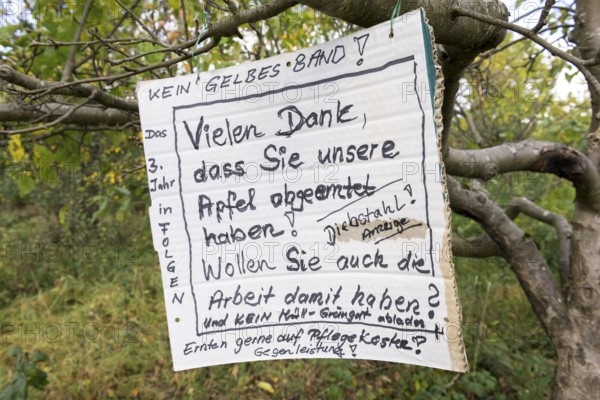 KEIN GELBES BAND!
DAS 3. JAHR in FOLGE!
Vielen Dank,
dass Sie unsere
Äpfel abgeerntet
haben!
Diebstahl!
Anzeige
Wollen Sie auch die
Arbeit damit haben?
und KEIN Müll-Grüngut abladen
Ernten gerne auf Pflegekosten!
Gegenleistung!